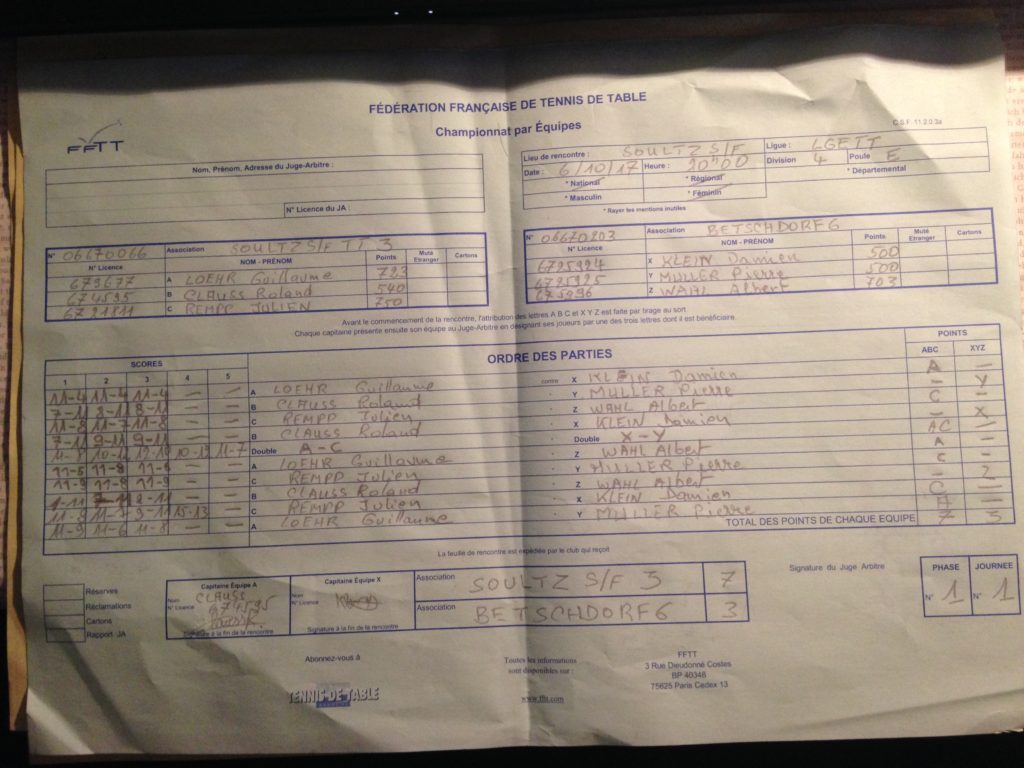 FÉDÉRATION FRANÇAISE DE TENNIS DE TABLE
Championnat par Équipes
C.S.F. 11.2.0.3a
FFTT
Nom, Prénom, Adresse du Juge-Arbitre :
N° Licence du JA :
Lieu de rencontre : SOULTZ S/F Ligue : LGETT
Date : 6/10/17 Heure : 20H00 Division 4 Poule E
* National * Régional * Départemental
* Masculin * Féminin
* Rayer les mentions inutiles
N° 06670066 Association SOULTZ S/F TT 3
N° Licence NOM - PRÉNOM Points Muté Etranger Cartons
679677 A LOEHR Guillaume 723
674595 B CLAUSS Roland 540
C REMPP JULIEN 750
N° 06670203 Association BETSCHDORF 6
N° Licence NOM - PRÉNOM Points Muté Etranger Cartons
6725924 X KLEIN Damien 500
6725925 Y MULLER Pierre 500
675996 Z WAHL Albert 703
Avant le commencement de la rencontre, l'attribution des lettres A B C et X Y Z est faite par tirage au sort
Chaque capitaine présente ensuite son équipe au Juge-Arbitre en désignant ses joueurs par une des trois lettres dont il est bénéficiaire.
SCORES ORDRE DES PARTIES POINTS
1 2 3 4 5 ABC XYZ
11-4 11-4 11-4 — — A LOEHR Guillaume contre X KLEIN Damien A —
7-11 8-11 8-11 — — B CLAUSS Roland Y MULLER Pierre — Y
11-8 11-7 11-8 — — C REMPP Julien Z WAHL Albert C —
7-11 9-11 9-11 — — B CLAUSS Roland X KLEIN Damien — X
11-8 10-12 12-10 10-12 11-7 Double A-C Double X-Y AC —
11-5 11-8 11-5 — — A LOEHR Guillaume Z WAHL Albert A —
11-9 11-8 11-9 — — C REMPP Julien Y MULLER Pierre C —
7-11 9-11 — — B CLAUSS Roland Z WAHL Albert — Z
11-8 9-11 15-13 — C REMPP Julien X KLEIN Damien C —
11-9 11-6 11-8 — — A LOEHR Guillaume Y MULLER Pierre A —
TOTAL DES POINTS DE CHAQUE EQUIPE 7 3
La feuille de rencontre est expédiée par le club qui reçoit
Réserves
Réclamations
Cartons
Rapport JA
Capitaine Équipe A
Nom CLAUSS
N° Licence 674595
Signature à la fin de la rencontre
Capitaine Équipe X
Nom
N° Licence
Signature à la fin de la rencontre
Association SOULTZ S/F 3 7
Association BETSCHDORF 6 3
Signature du Juge Arbitre
PHASE JOURNEE
N° 1 N° 1
Abonnez-vous à
TENNIS DE TABLE
Toutes les informations
sont disponibles sur :
www.fftt.com
FFTT
3 Rue Dieudonné Costes
BP 40348
75625 Paris Cedex 13